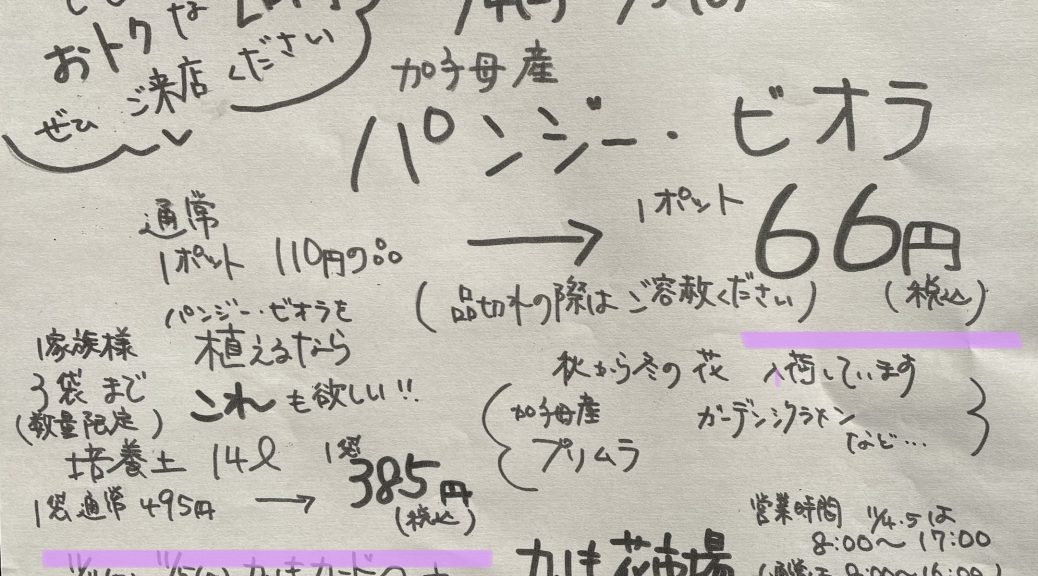 おトクな
ぜひ ご来店 ください
加子母産
パンジー・ビオラ
通常
1ポット 110円の品
→
1ポット 66円
(税込)
(品切れの際はご容赦ください)
パンジー・ビオラを
植えるなら
これも欲しい!!
1家族様
3袋まで
(数量限定)
培養土 14ℓ
1袋通常 495円 → 1袋 385円
(税込)
秋から冬の花 入荷しています
(加子母産 ガーデンシクラメン
プリムラ など…)
花市場
営業時間 11/4.5は
8:00〜17:00